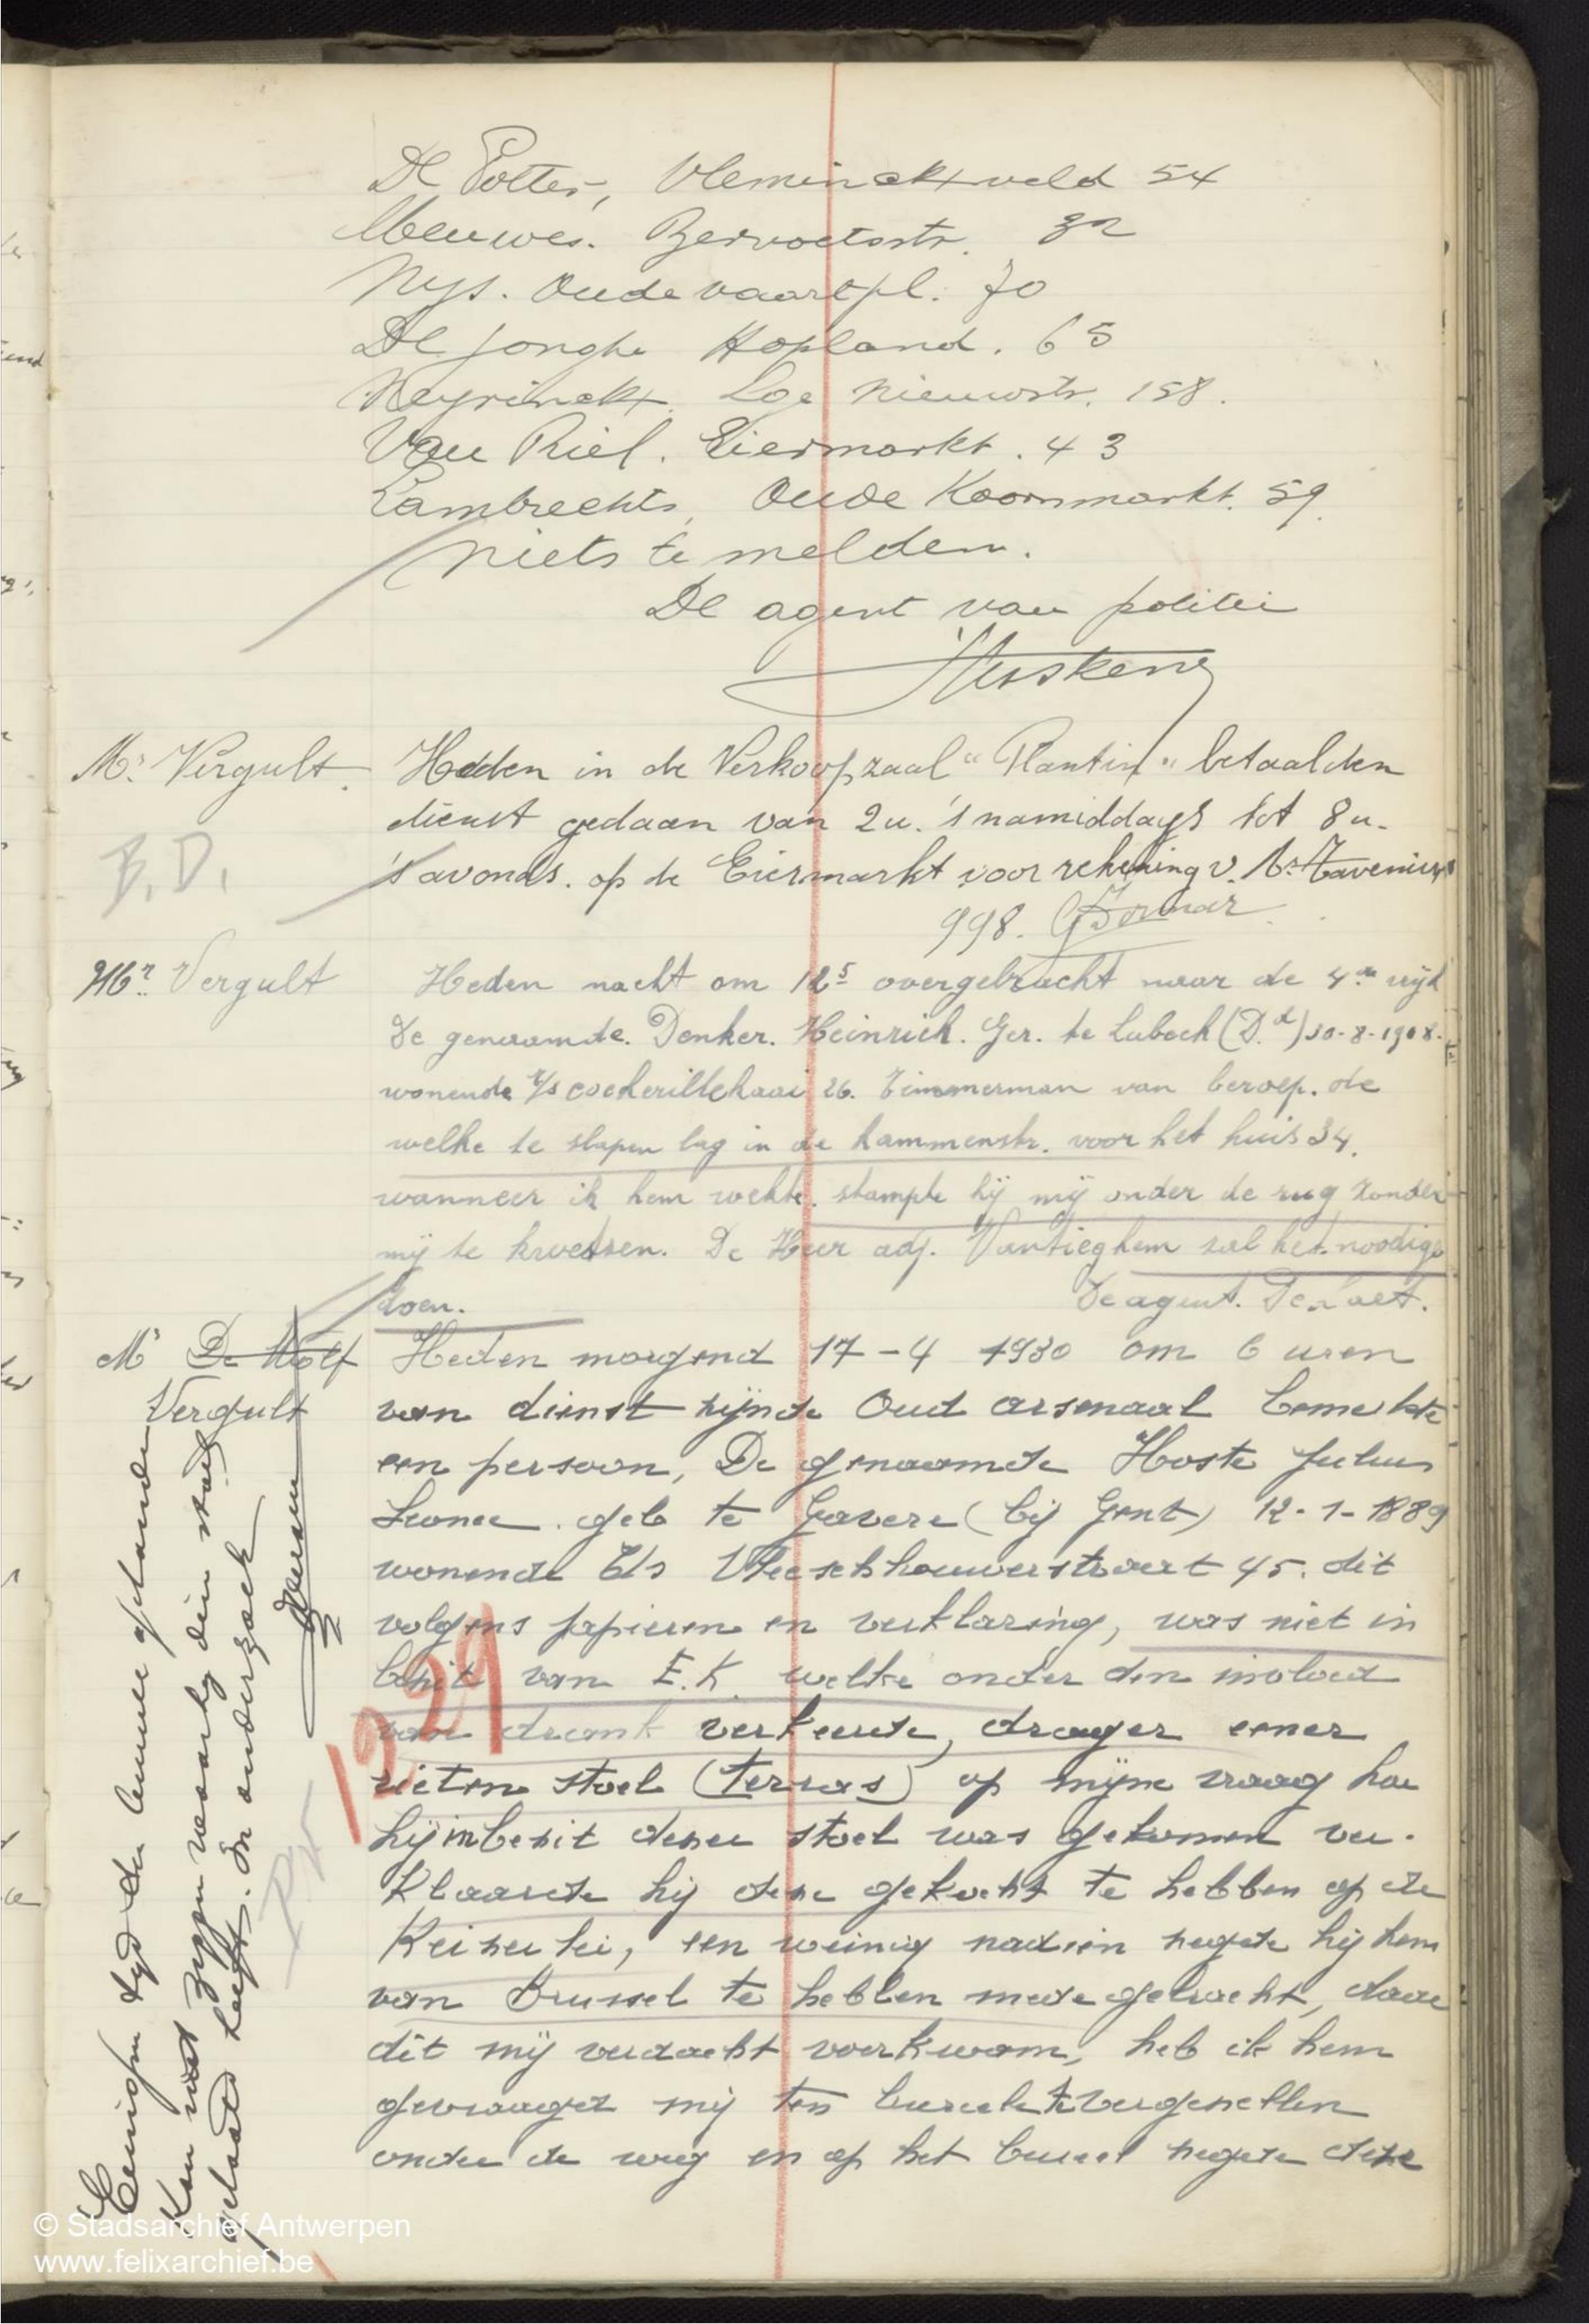 De Potter, Vleminckxveld 54
Meuwes. Bervoetsstr. 32
Nys. Oudevaartpl. 70
De Jonghe Hopland. 65
Neyrinckx. Lge Nieuwstr. 158.
Van Riel. Eiermarkt. 43
Lambrechts, Oude Koornmarkt. 59.
niets te melden.
De agent van politie
Mr. Vergult.
Heden in de Verkoopzaal "Plantin" betaalden
dienst gedaan van 2u. 's namiddags tot 8u.
B.D.
's avonds. op de Eiermarkt voor rekening v. Mr Taveniers
998.
Mr. Vergult
Heden nacht om 12⁵ overgebracht naar de 4de wijk
De genaamde. Denker. Heinrich. Ger. te Lubeck (Dd) 30-8-1908.
wonende t/s cockerillkaai 26. Timmerman van beroep. de
welke te slapen lag in de kammenstr. voor het huis 34.
wanneer ik hem wekte. stampte hij mij onder de rug zonder
mij te kwetsen. De Heer adj. Vantieghem zal het noodige
doen.
De agent.
Mr De Wolf
Vergult
Heden morgend 17-4 1930 om 6 uren
van dienst zijnde Oud arsenaal bemerkte
een persoon, De genaamde Hoste Julius
geb te Gavere (bij Gent) 12-1-1889
wonende t/s Vleeschhouwerstraat 45. dit
volgens papieren en verklaring, was niet in
bezit van E.K. welke onder den invloed
van drank verkeerde, drager eener
rieten stoel (terras) op mijne vraag hoe
hij in bezit dezer stoel was gekomen ver-
klaarde hij deze gekocht te hebben op de
Keizerlei, een weinig nadien zegde hij hem
van Brussel te hebben mede gebracht, daar
dit mij verdacht voorkwam, heb ik hem
gevraagd mij ten bureele te vergezellen
onder de weg en op het bureel zegde deze
1229
Eenigen tyd der kamer
Kan niet zeggen waar hy dien stoel
gehaald heeft. In onderzoek
© Stadsarchief Antwerpen
www.felixarchief.be